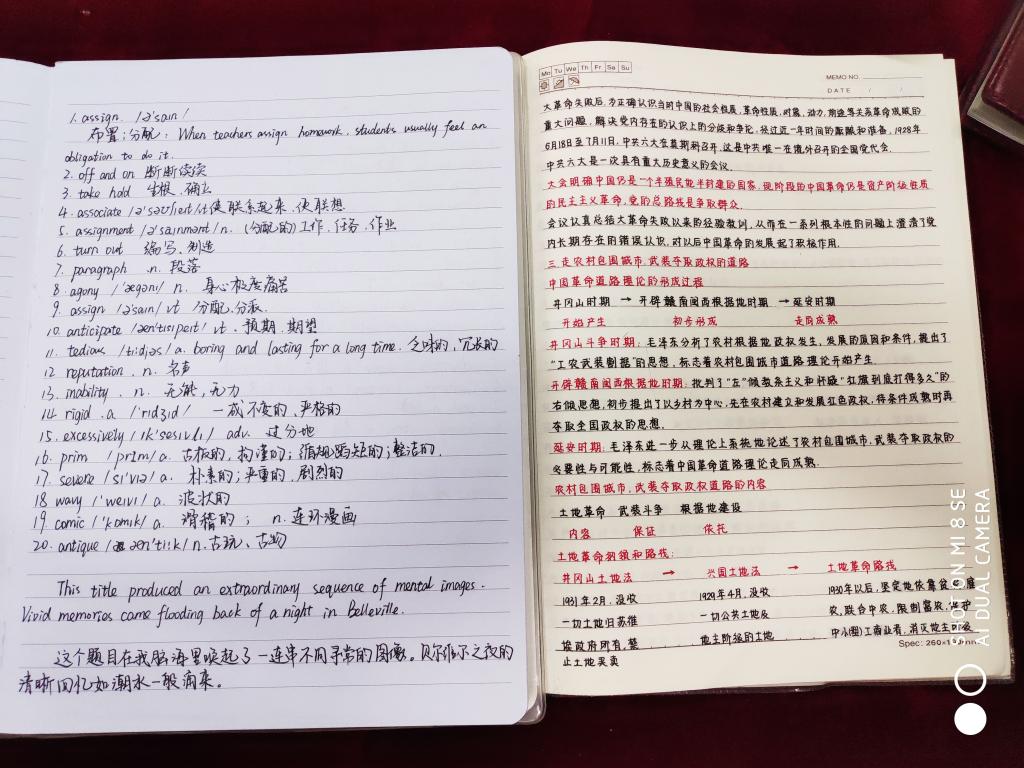 1. assign. /ə'sain/
布置；分配：When teachers assign homework, students usually feel an
obligation to do it.
2. off and on 断断续续
3. take hold 生根、确立
4. associate /ə'səuʃieit/vt使联系起来，使联想
5. assignment /ə'sainmənt/n. (分配的)工作、任务、作业
6. turn out 编写、制造
7. paragraph .n. 段落
8. agony /'ægəni/ n. 身心极度痛苦
9. assign /ə'sain/ vt 分配、分派.
10. anticipate /æn'tisipeit/ vt. 预期、期望
11. tedious /ti:diəs/ a. boring and lasting for a long time. 乏味的，冗长的
12 reputation . n. 名声
13. inability . n. 无能，无力
14. rigid .a /'ridʒid/ 一成不变的、严格的
15. excessively /ik'sesivli/ adv. 过分地
16. prim /prim/ a. 古板的，拘谨的；循规蹈矩的；整洁的.
17. severe /si'viə/ a. 朴素的；严重的，剧烈的
18 wavy /'weivi/ a. 波状的
19. comic /'kɒmik/ a. 滑稽的； n.连环漫画
20. antique /æn'ti:k/ n.古玩、古物
This title produced an extraordinary sequence of mental images.
Vivid memories came flooding back of a night in Belleville.
这个题目在我脑海里唤起了一连串不同寻常的图像。贝尔维尔之夜的
清晰回忆如潮水一般涌来。
Mo Tu We Th Fr Sa Su
MEMO NO.
DATE / /
大革命失败后，为正确认识当时中国的社会性质，革命性质、对象、动力、前途等关系革命成败的
重大问题，解决党内存在的认识上的分歧和争论，经过近一年时间的酝酿和准备，1928年
6月18日至7月11日，中共六大在莫斯科召开，这是中共唯一在境外召开的全国党代会.
中共六大是一次具有重大历史意义的会议.
大会明确中国仍是一个半殖民地半封建的国家，现阶段的中国革命仍是资产阶级性质
的民主主义革命，党的总路线是争取群众.
会议认真总结大革命失败以来的经验教训，从而在一系列根本性的问题上澄清了党
内长期存在的错误认识，对以后中国革命的发展起了积极作用.
三.走农村包围城市，武装夺取政权的道路
中国革命道路理论的形成过程
井冈山时期 → 开辟赣南闽西根据地时期 → 延安时期
开始产生 初步形成 走向成熟
井冈山斗争时期：毛泽东分析了农村根据地政权发生、发展的原因和条件，提出了
“工农武装割据”的思想，标志着农村包围城市道路理论开始产生
开辟赣南闽西根据地时期：批判了“左”倾教条主义和怀疑“红旗到底打得多久”的
右倾思想，初步提出了以乡村为中心，先在农村建立和发展红色政权，待条件成熟时再
夺取全国政权的思想.
延安时期：毛泽东进一步从理论上系统地论述了农村包围城市，武装夺取政权的
必要性与可能性，标志着中国革命道路理论走向成熟.
农村包围城市，武装夺取政权道路的内容
土地革命 武装斗争 根据地建设
内容 保证 依托
土地革命纲领和路线：
井冈山土地法 → 兴国土地法 → 土地革命路线
1931年2月，没收 1929年4月，没收 1930年以后，坚定地依靠贫
一切土地归苏维 一切公共土地及 农，联合中农，限制富农，
埃政府所有，禁 地主阶级的土地 中小工商业者，消灭地主阶级
止土地买卖
Spec: 260×
SHOT ON MI 8 SE
AI DUAL CAMERA